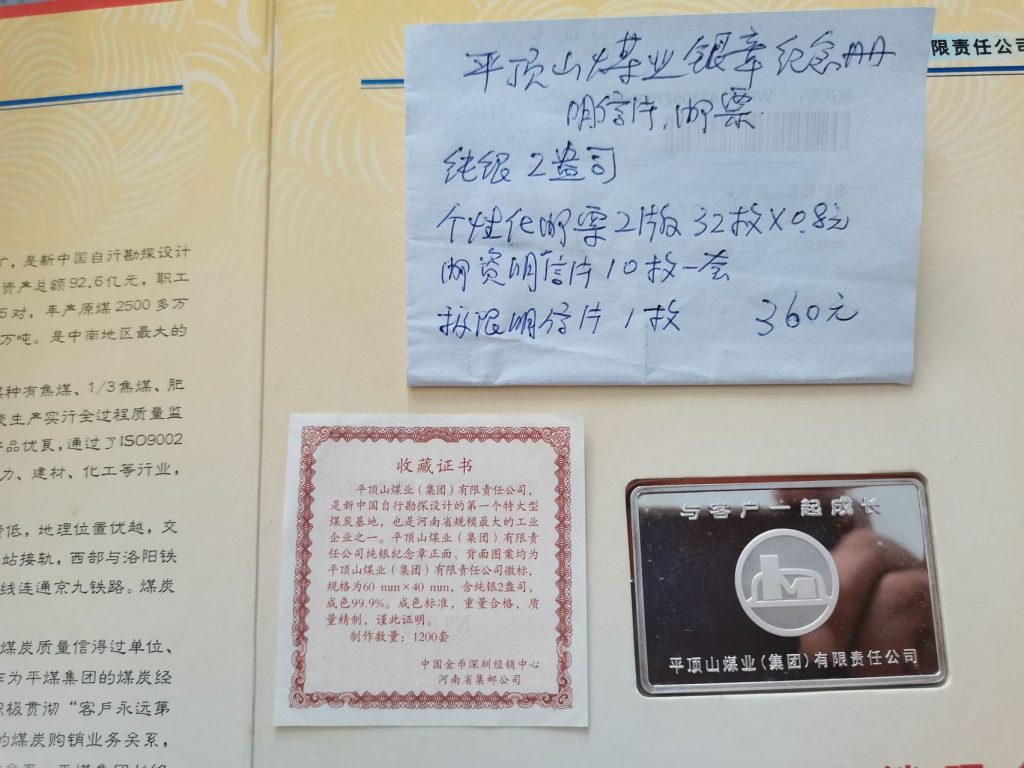 限责任公司
平顶山煤业银章纪念册
明信片.邮票
纯银2盎司
个性化邮票2版32枚×0.8元
邮资明信片10枚一套
极限明信片1枚 360元
矿，是新中国自行勘探设计
资产总额92.6亿元，职工
5对，年产原煤2500多万
万吨。是中南地区最大的
某种有焦煤、1/3焦煤、肥
炭生产实行全过程质量监
产品优良，通过了ISO9002
力、建材、化工等行业，
费低，地理位置优越，交
站接轨，西部与洛阳铁
线连通京九铁路。煤炭
煤炭质量信得过单位、
作为平煤集团的煤炭经
积极贯彻“客户永远第
的煤炭购销业务关系，
收藏证书
平顶山煤业（集团）有限责任公司，
是新中国自行勘探设计的第一个特大型
煤炭基地，也是河南省规模最大的工业
企业之一。平顶山煤业（集团）有限责
任公司纯银纪念章正面、背面图案均为
平顶山煤业（集团）有限责任公司徽标，
规格为60 mm×40 mm，含纯银2盎司，
成色99.9%。成色标准，重量合格，质
量精制，谨此证明。
制作数量：1200套
中国金币深圳经销中心
河南省集邮公司
与客户一起成长
平顶山煤业（集团）有限责任公司